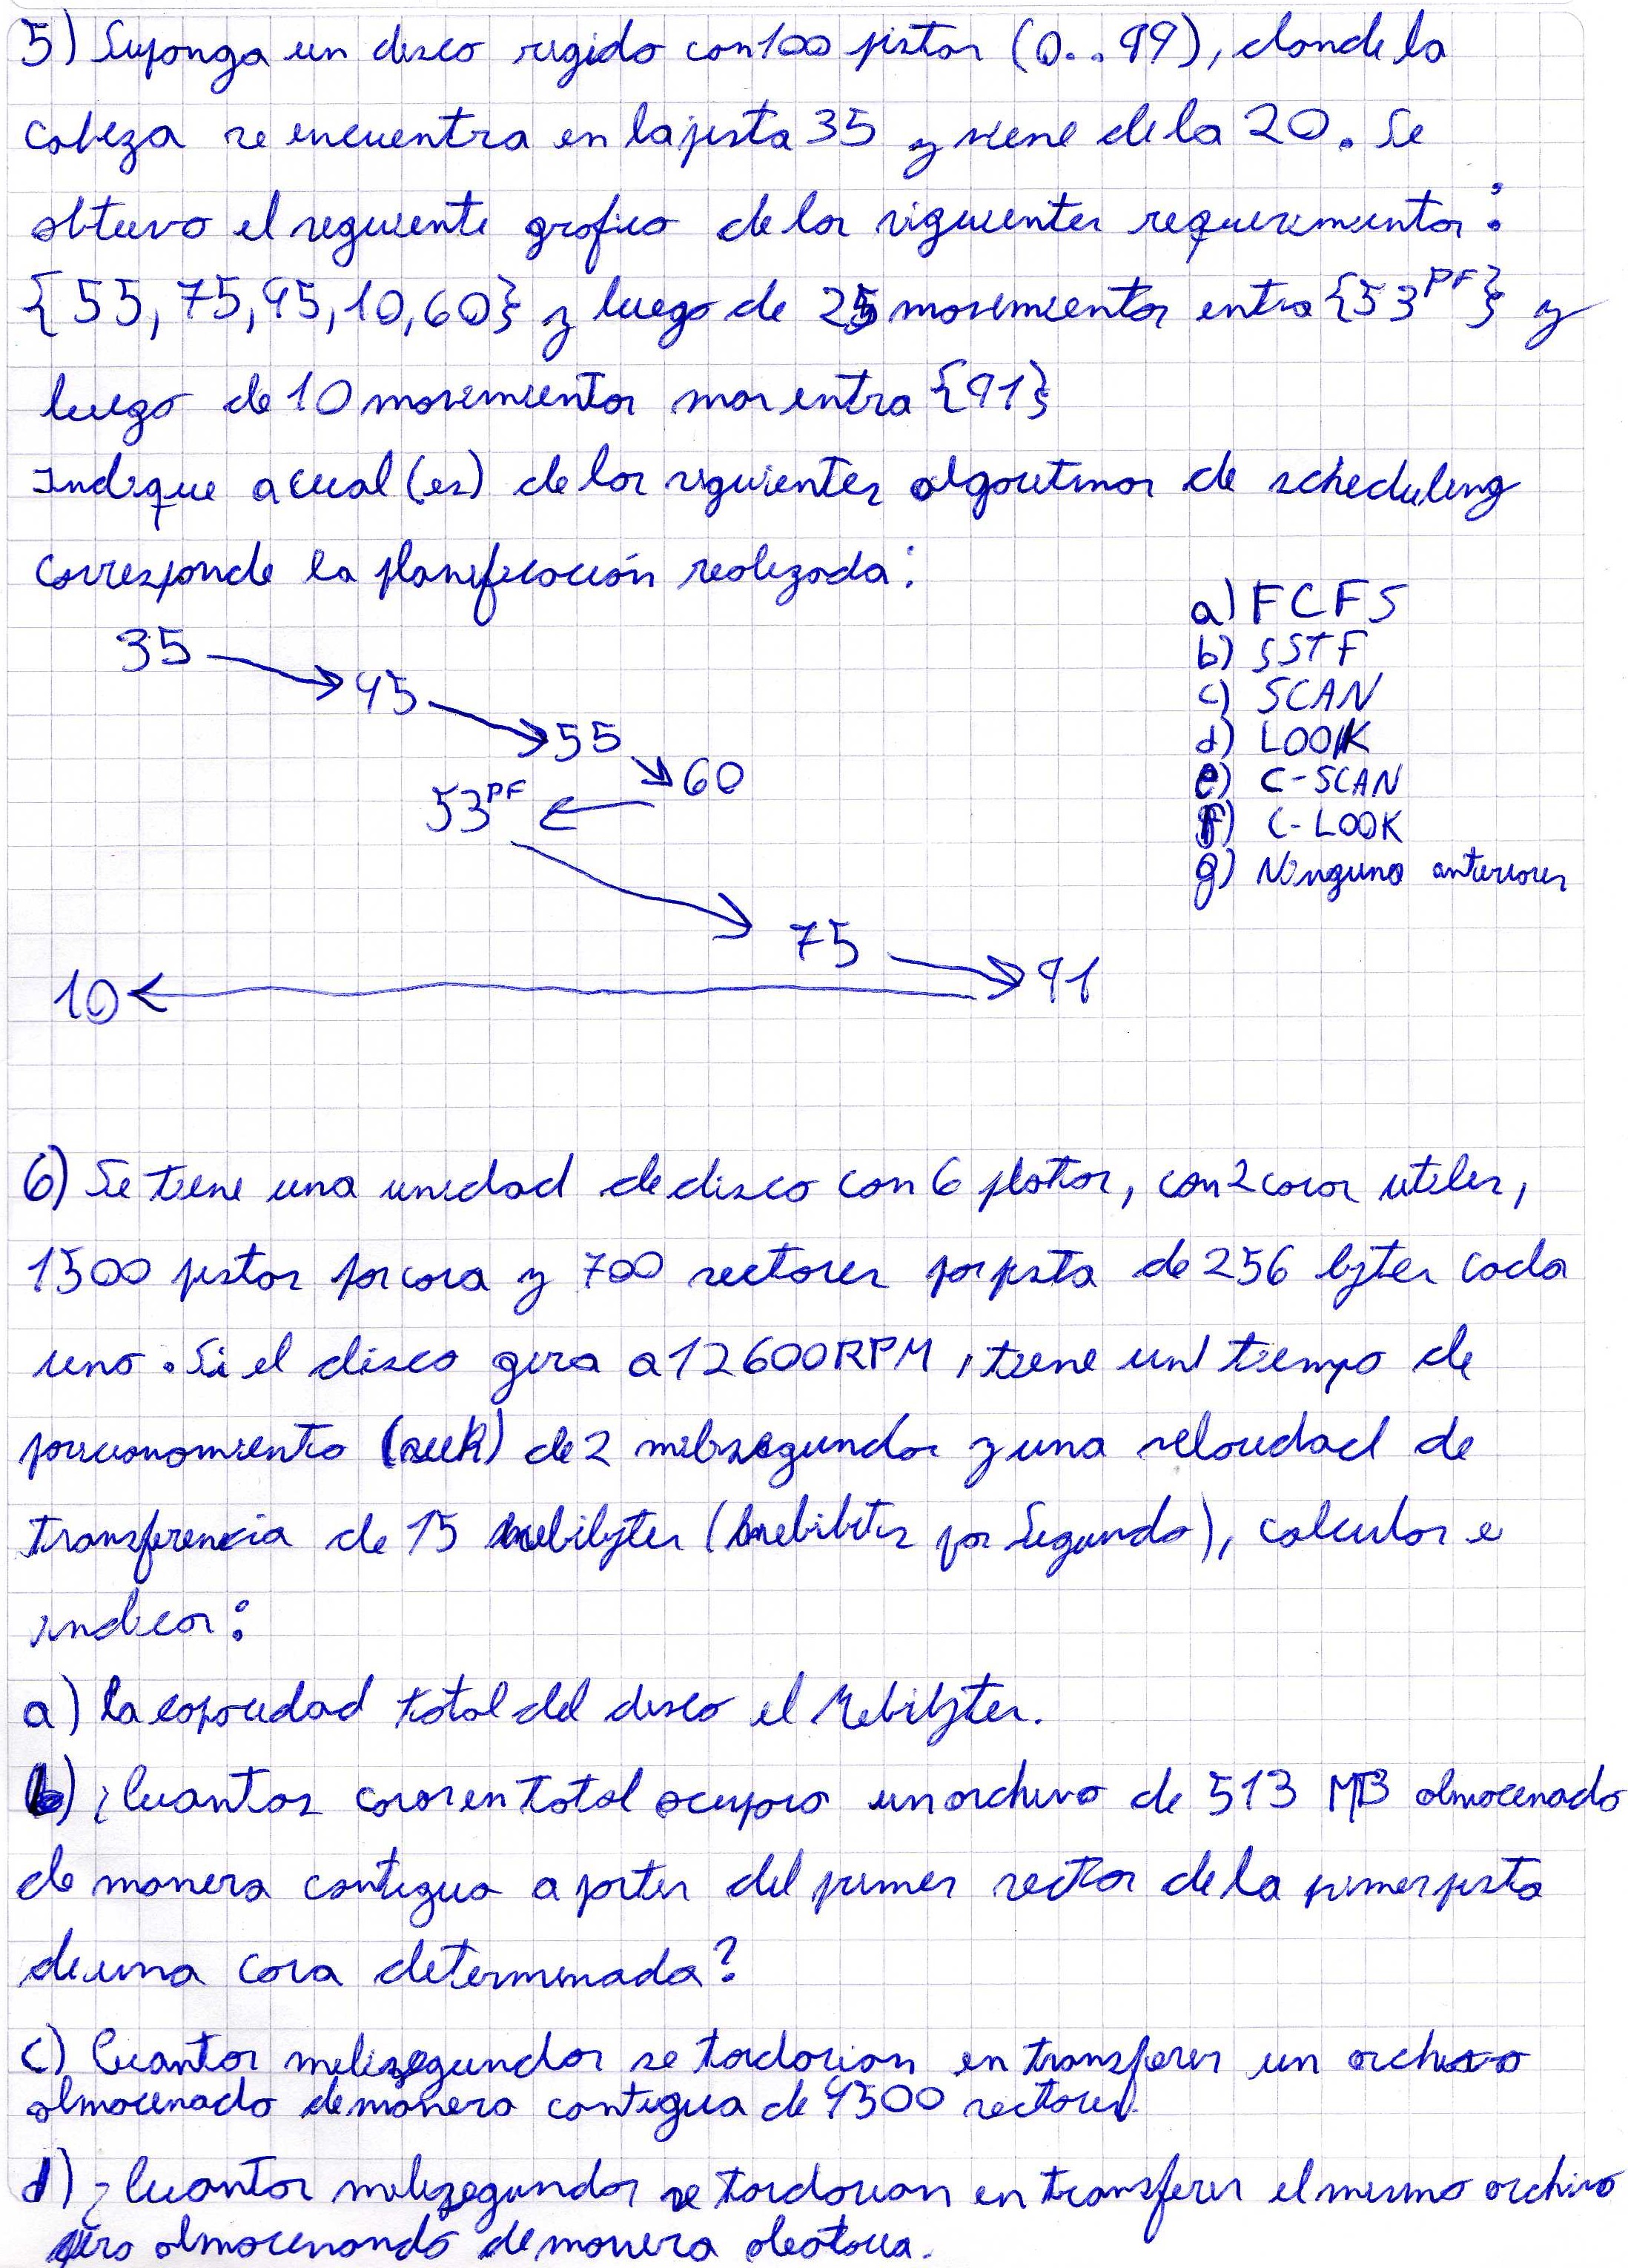 5) Suponga un disco rigido con 100 pistas (0..99), donde la
cabeza se encuentra en la pista 35 y viene de la 20. Se
obtuvo el siguiente grafico de los siguientes requerimientos:
{55, 75, 45, 10, 60} y luego de 25 movimientos entra {53 PF} y
luego de 10 movimientos mas entra {91}
Indique a cual (es) de los siguientes algoritmos de scheduling
corresponde la planificación realizada:
a) FCFS
b) SSTF
c) SCAN
d) LOOK
e) C-SCAN
f) C-LOOK
g) Ninguno anteriores
35
45
55
60
53 PF
75
91
10
6) Se tiene una unidad de disco con 6 platos, con 2 caras utiles,
1500 pistas por cara y 700 sectores por pista de 256 bytes cada
uno. Si el disco gira a 12600 RPM, tiene un tiempo de
posicionamiento (seek) de 2 milisegundos y una velocidad de
transferencia de 15 mebibytes (mebibits por Segundo), calcular e
indicar:
a) La capacidad total del disco el Mebibytes.
b) ¿Cuantas caras en total ocupara un archivo de 513 MB almacenado
de manera contigua a partir del primer sector de la primer pista
de una cara determinada?
c) Cuantos milisegundos se tardarian en transferir un archivo
almacenado de manera contigua de 4500 sectores.
d) ¿Cuantos milisegundos se tardarian en transferir el mismo archivo
pero almacenando de manera aleatoria.